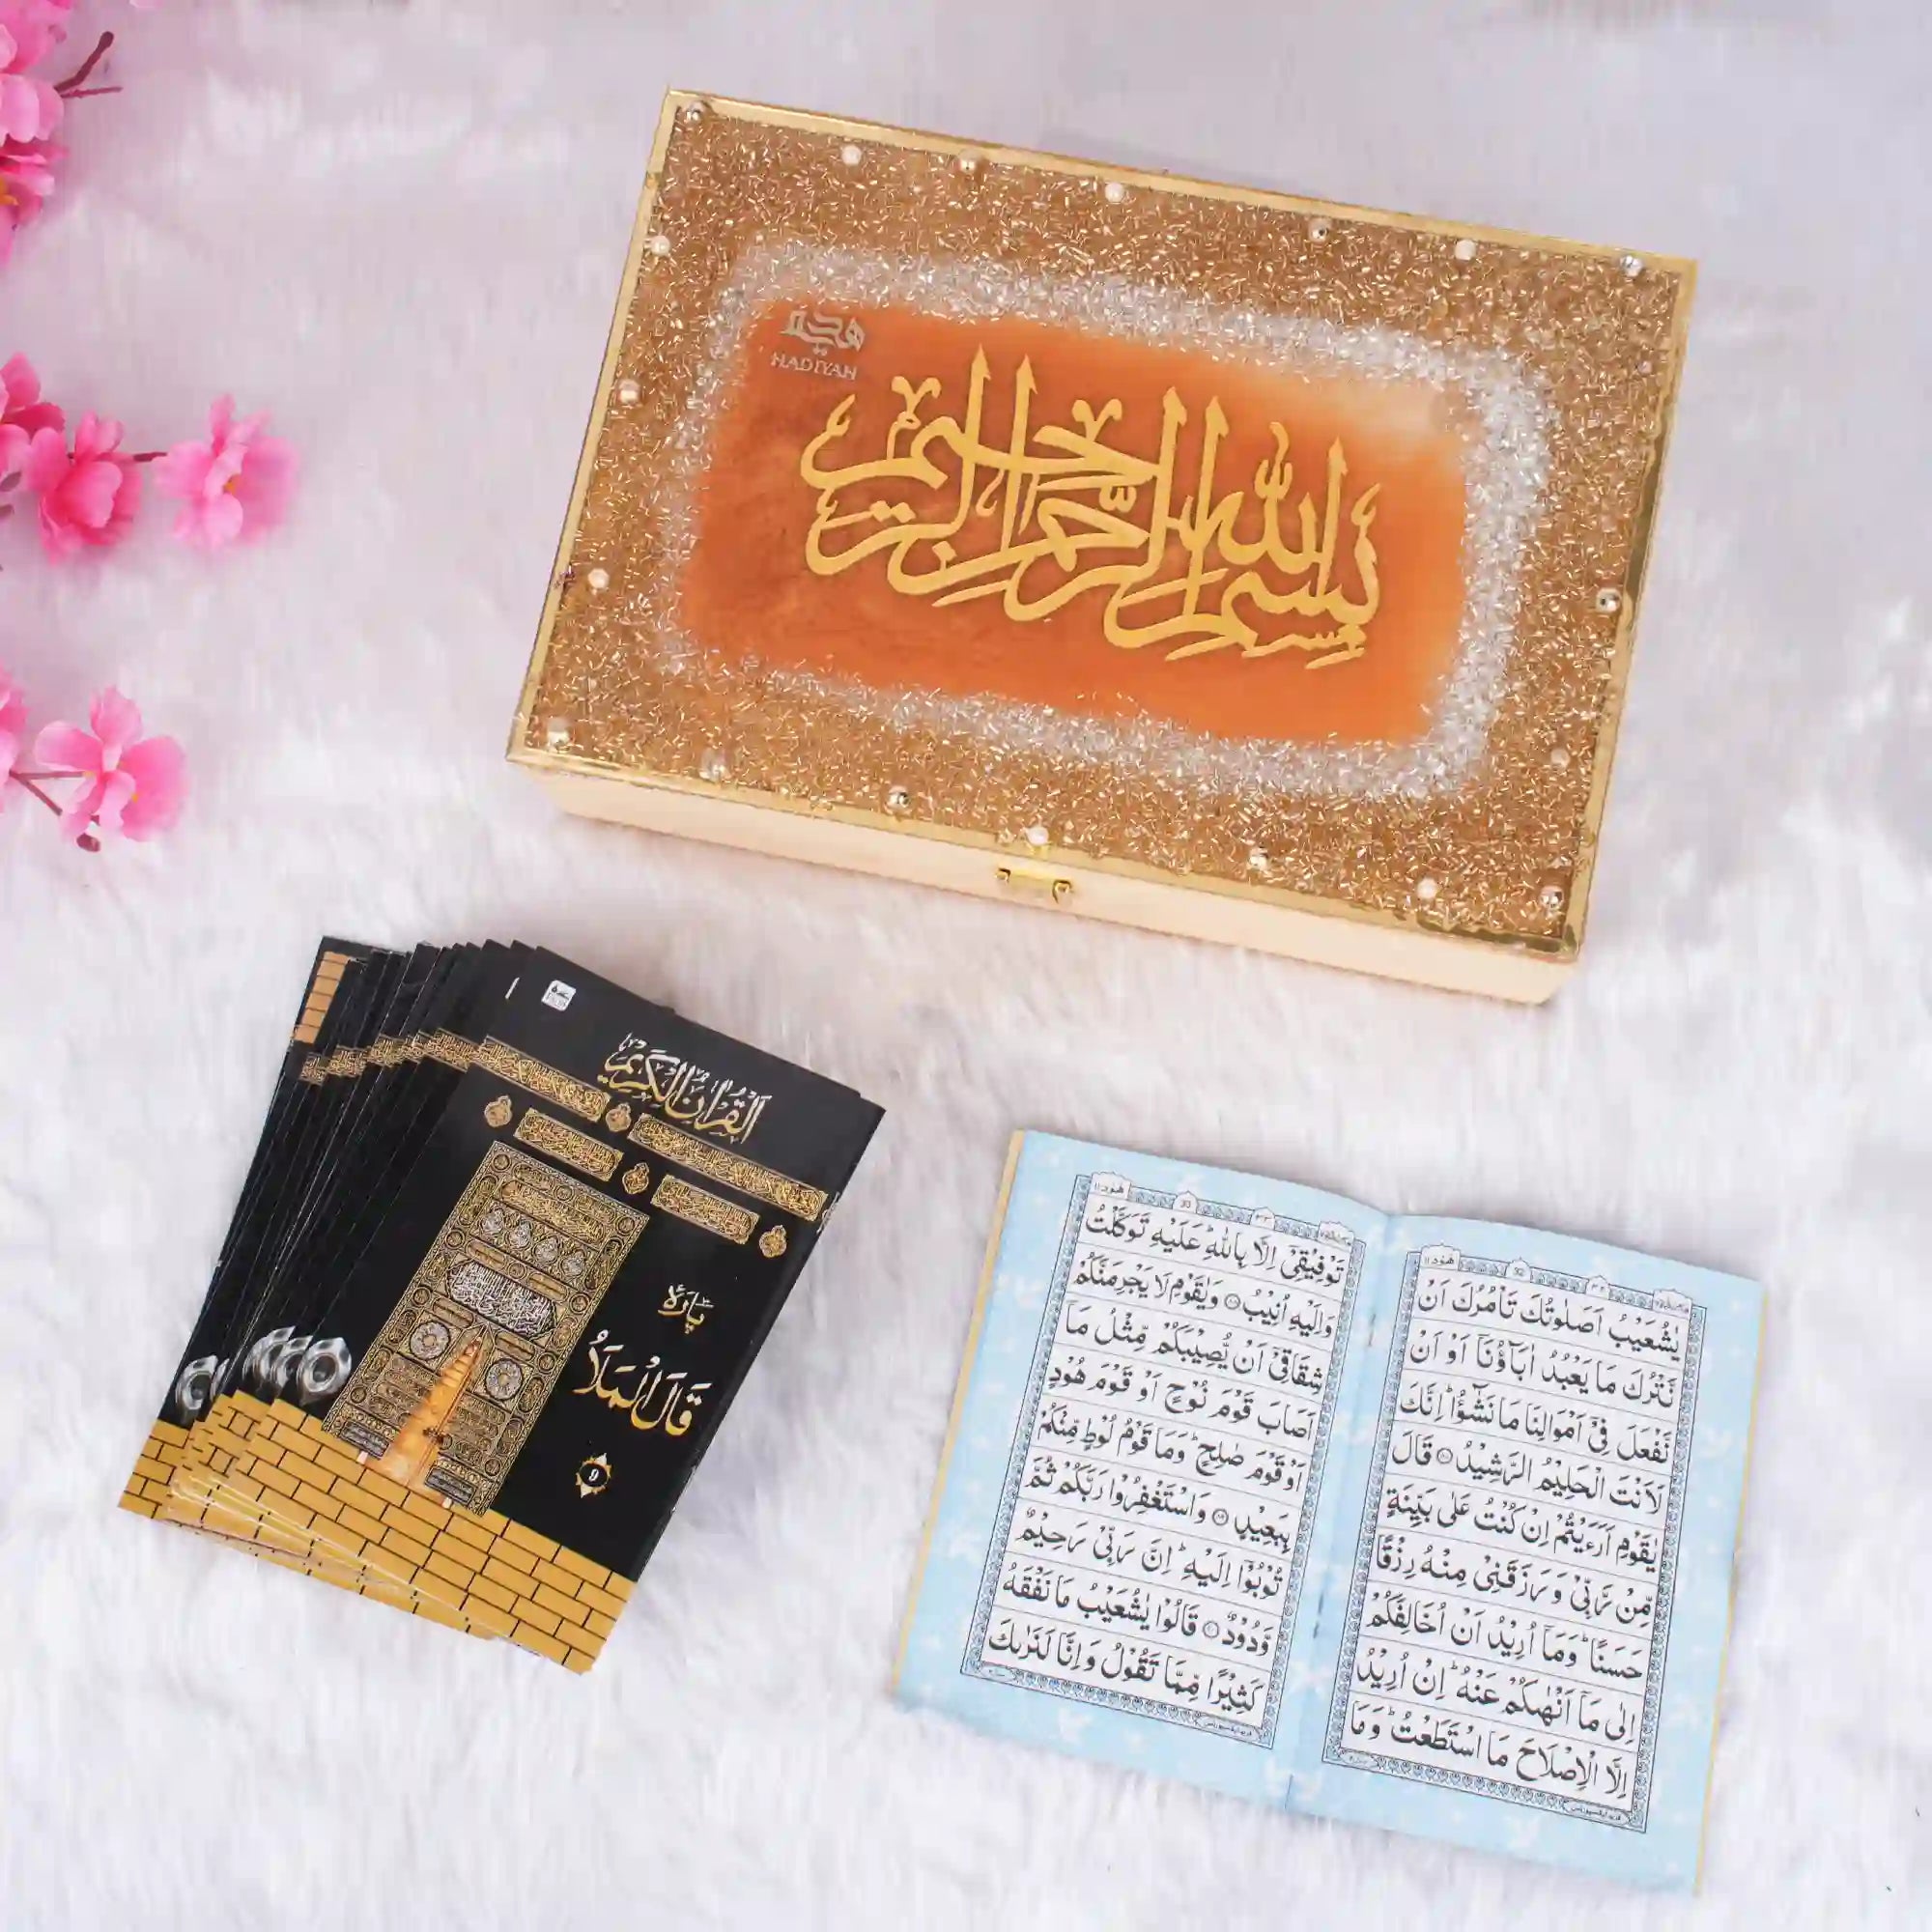 هدية
HADIYAH
بسم الله الرحمن الرحيم
القرآن الكريم
پارہ
قَالَ الْمَلَأُ
9
هود ١١
32
٣٢
يٰشُعَيْبُ اَصَلٰوتُكَ تَاْمُرُكَ اَنْ
نَّتْرُكَ مَا يَعْبُدُ اٰبَآؤُنَآ اَوْ اَنْ
نَّفْعَلَ فِيْٓ اَمْوَالِنَا مَا نَشٰٓؤُا ؕ اِنَّكَ
لَاَنْتَ الْحَلِيْمُ الرَّشِيْدُ ۝ قَالَ
يٰقَوْمِ اَرَءَيْتُمْ اِنْ كُنْتُ عَلٰى بَيِّنَةٍ
مِّنْ رَّبِّيْ وَ رَزَقَنِيْ مِنْهُ رِزْقًا
حَسَنًا ؕ وَمَآ اُرِيْدُ اَنْ اُخَالِفَكُمْ
اِلٰى مَآ اَنْهٰىكُمْ عَنْهُ ؕ اِنْ اُرِيْدُ
اِلَّا الْاِصْلَاحَ مَا اسْتَطَعْتُ ؕ وَمَا
هود ١١
33
٣٣
تَوْفِيْقِيْٓ اِلَّا بِاللّٰهِ ؕ عَلَيْهِ تَوَكَّلْتُ
وَاِلَيْهِ اُنِيْبُ ۝ وَيٰقَوْمِ لَا يَجْرِمَنَّكُمْ
شِقَاقِيْٓ اَنْ يُّصِيْبَكُمْ مِّثْلُ مَآ
اَصَابَ قَوْمَ نُوْحٍ اَوْ قَوْمَ هُوْدٍ
اَوْ قَوْمَ صٰلِحٍ ؕ وَمَا قَوْمُ لُوْطٍ مِّنْكُمْ
بِبَعِيْدٍ ۝ وَاسْتَغْفِرُوْا رَبَّكُمْ ثُمَّ
تُوْبُوْٓا اِلَيْهِ ؕ اِنَّ رَبِّيْ رَحِيْمٌ
وَّدُوْدٌ ۝ قَالُوْا يٰشُعَيْبُ مَا نَفْقَهُ
كَثِيْرًا مِّمَّا تَقُوْلُ وَاِنَّا لَنَرٰىكَ